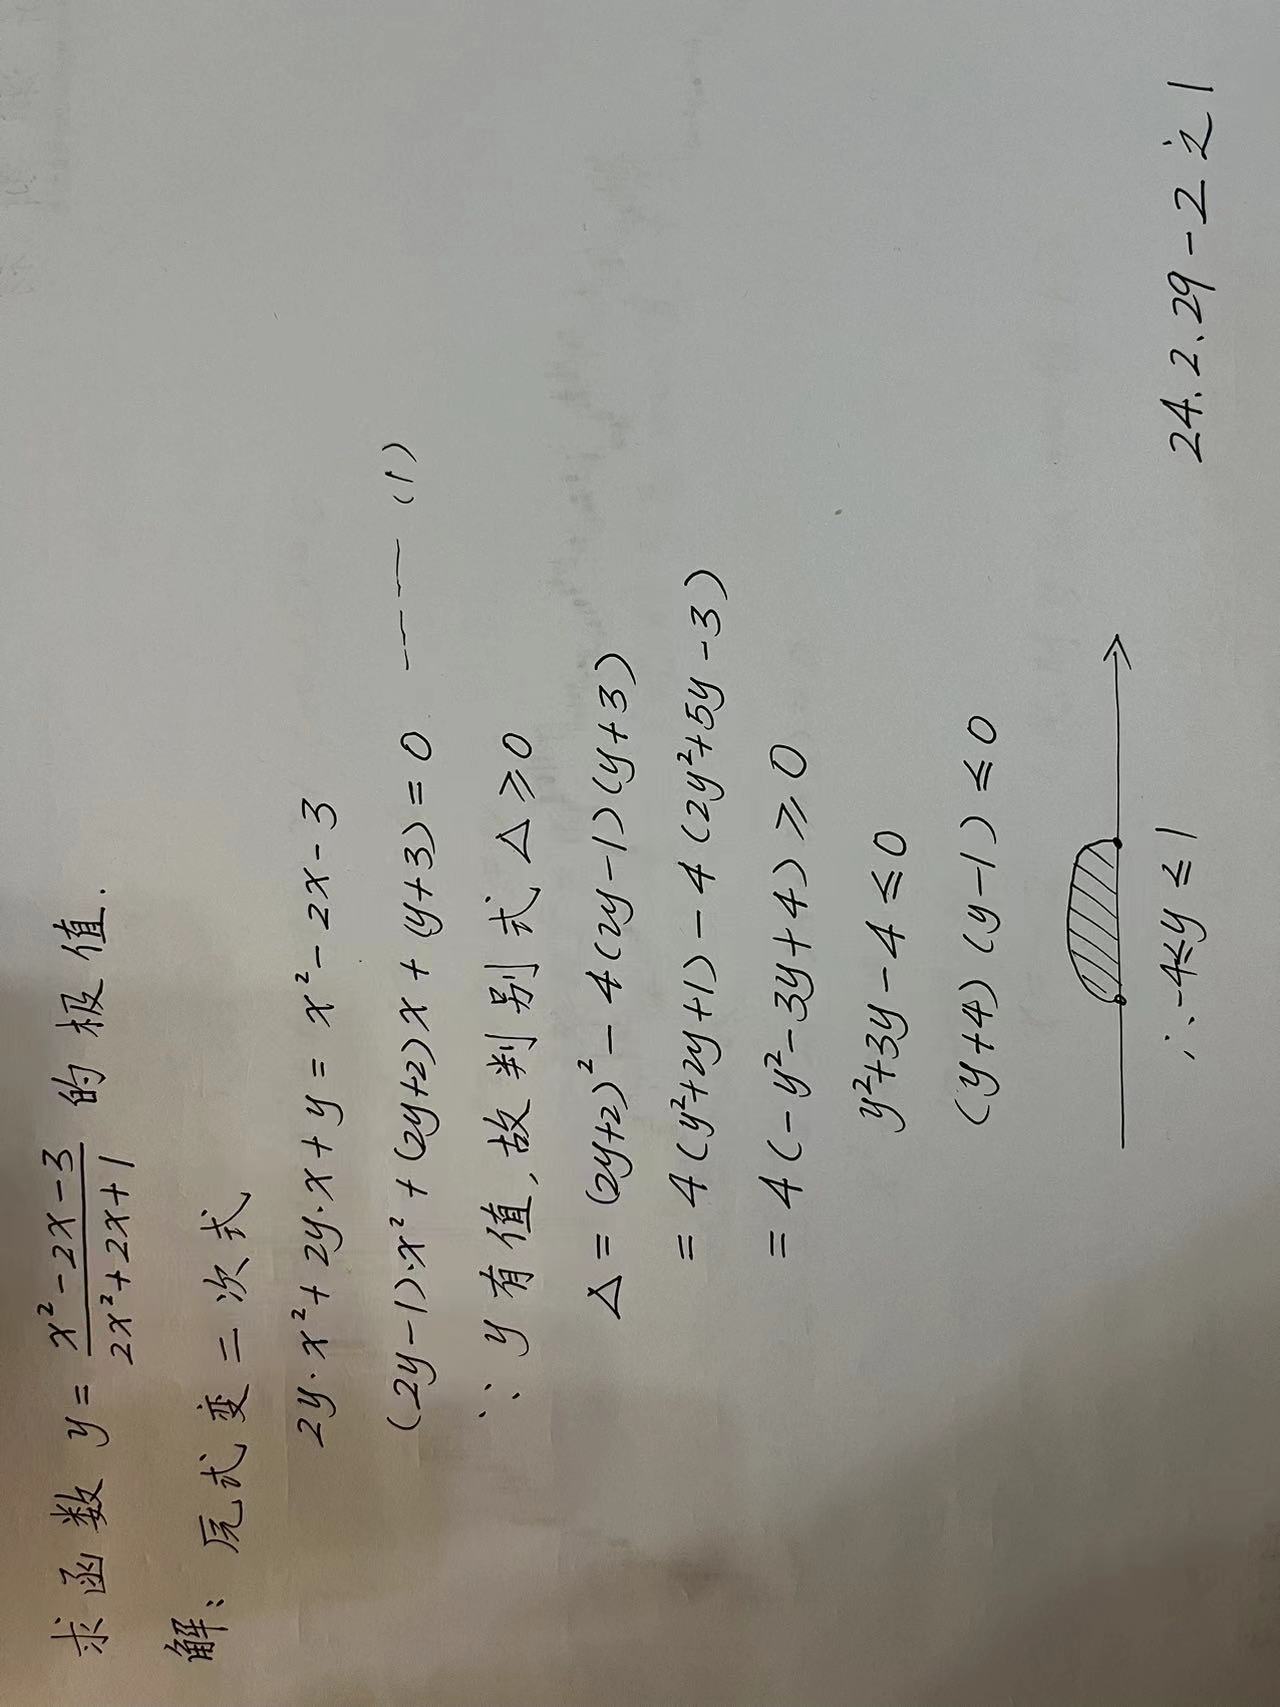 求函数 y = \frac{x²-2x-3}{2x²+2x+1} 的极值.
解: 原式变二次式
2y·x²+2y·x+y = x²-2x-3
(2y-1)·x²+(2y+2)x+(y+3)=0 ---- (1)
∵ y有值, 故判别式 △≥0
△=(2y+2)²-4(2y-1)(y+3)
=4(y²+2y+1)-4(2y²+5y-3)
=4(-y²-3y+4)≥0
y²+3y-4≤0
(y+4)(y-1)≤0
∴ -4≤y≤1
24.2.29-2之1